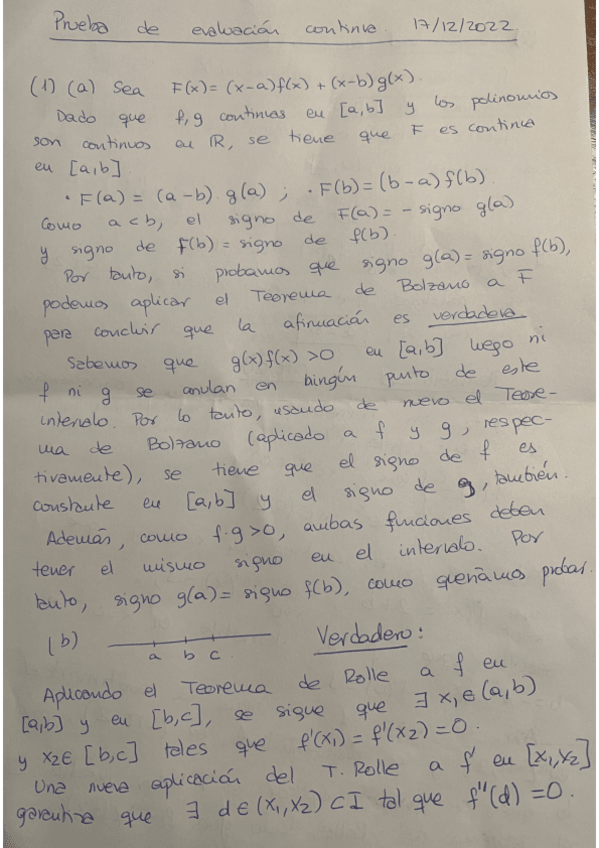 Prueba de evaluación continua. 17/12/2022
(1) (a) Sea F(x) = (x-a)f(x) + (x-b)g(x).
Dado que f,g continuas en [a,b] y los polinomios
son continuos en ℝ, se tiene que F es continua
en [a,b].
· F(a) = (a-b) g(a) ; · F(b) = (b-a) f(b).
Como a<b, el signo de F(a) = - signo g(a)
y signo de F(b) = signo de f(b).
Por tanto, si probamos que signo g(a) = signo f(b),
podemos aplicar el Teorema de Bolzano a F
para concluir que la afirmación es verdadera
Sabemos que g(x)f(x) >0 en [a,b] luego ni
f ni g se anulan en ningún punto de este
intervalo. Por lo tanto, usando de nuevo el Teore-
ma de Bolzano (aplicado a f y g, respec-
tivamente), se tiene que el signo de f es
constante en [a,b] y el signo de g, también.
Además, como f·g>0, ambas funciones deben
tener el mismo signo en el intervalo. Por
tanto, signo g(a) = signo f(b), como queríamos probar.
(b) Verdadero:
a b c
Aplicando el Teorema de Rolle a f en
[a,b] y en [b,c], se sigue que ∃ x₁∈(a,b)
y x₂∈ [b,c] tales que f'(x₁) = f'(x₂) = 0.
Una nueva aplicación del T. Rolle a f' en [x₁,x₂]
garantiza que ∃ d∈(x₁,x₂) ⊂ I tal que f''(d) = 0.